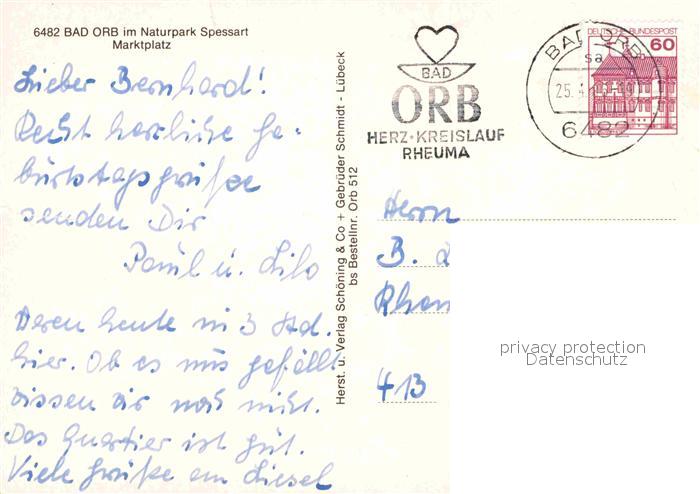 6482 BAD ORB im Naturpark Spessart
Marktplatz
Lieber Bernhard!
Recht herzliche Ge-
burtstagsgrüße
senden Dir
Paul u. Lilo
Waren heute in 3 Std.
hier. Ob es uns gefällt
wissen wir noch nicht.
Das Quartier ist gut.
Viele Grüße an Liesel
Herst. u. Verlag Schöning & Co + Gebrüder Schmidt - Lübeck
bs Bestellnr. Orb 512
BAD
ORB
HERZ-KREISLAUF
RHEUMA
BAD ORB
sa
25.4.
6482
DEUTSCHE BUNDESPOST
60
Herrn
B.
Rhein
413
privacy protection
Datenschutz